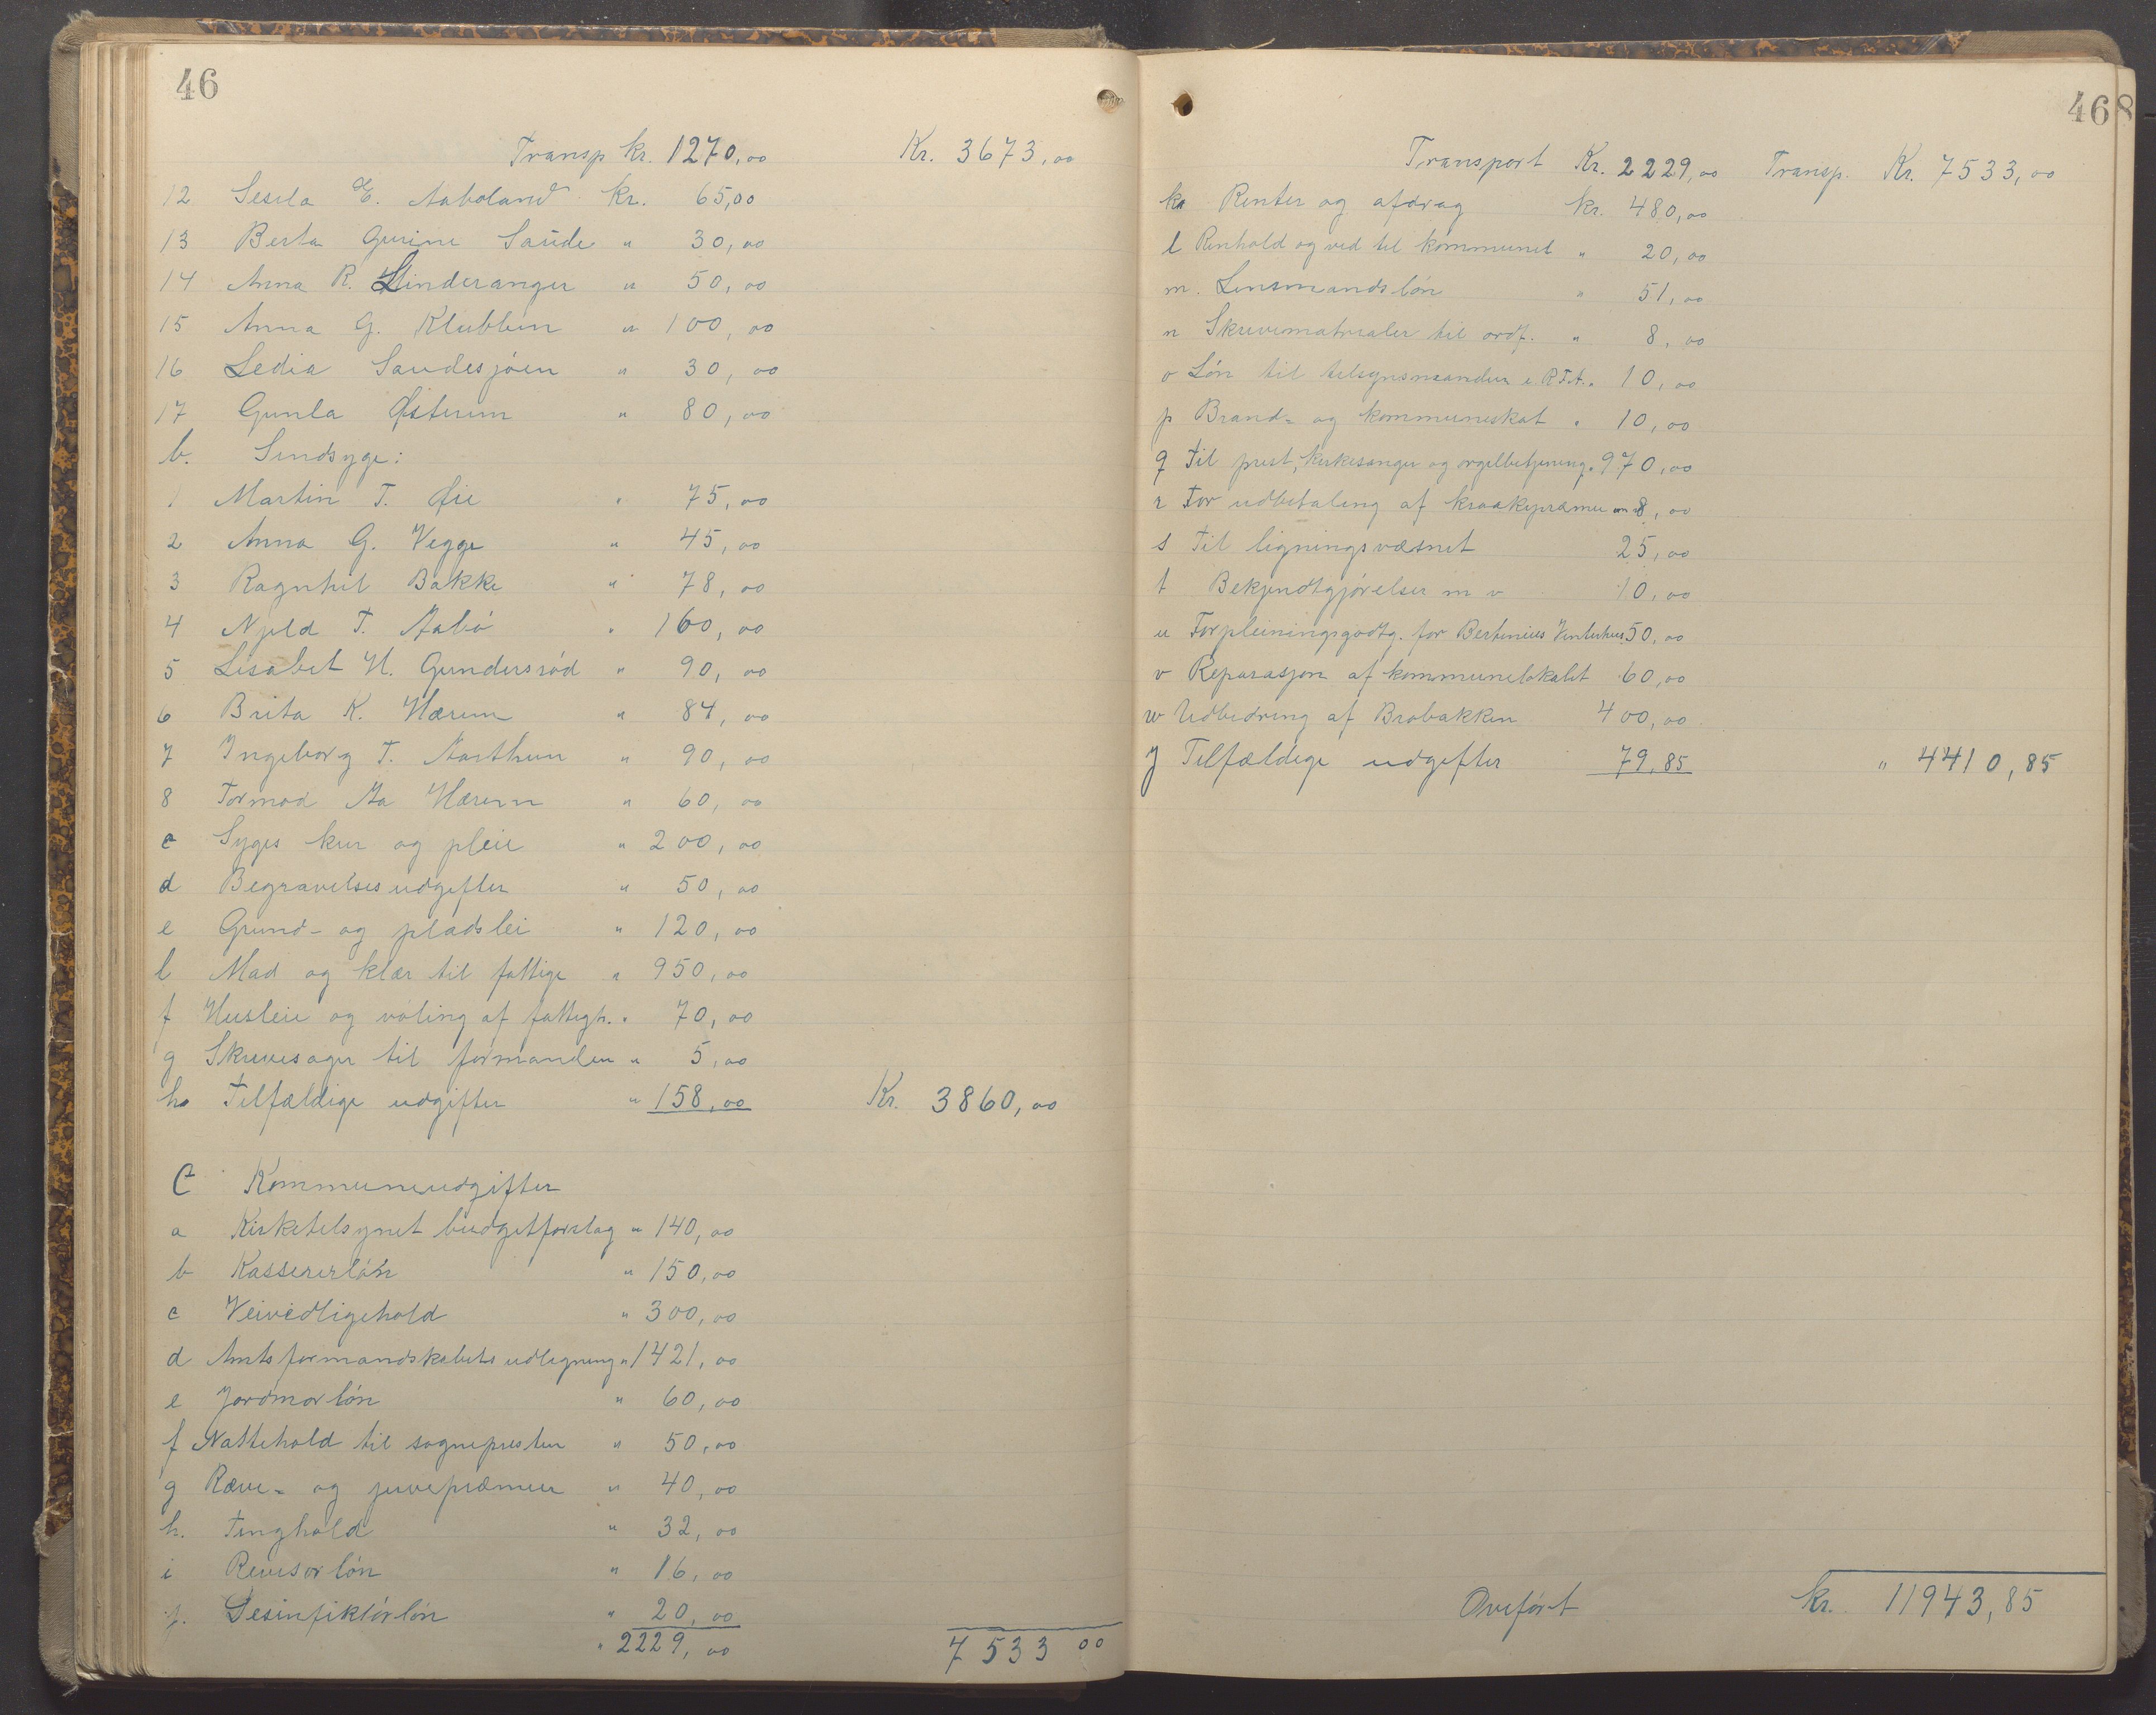 46
Transp kr. 1270,00 Kr. 3673,00
12 Sesila E. Aaboland kr. 65,00
13 Berta Gurine Saude " 30,00
14 Anna R. Linderanger " 50,00
15 Anna G. Klubben " 100,00
16 Ledia Saudesjøen " 30,00
17 Gunla Østerem " 80,00
b. Sindsyge:
1 Martin T. Øie " 75,00
2 Anna G. Vegge " 45,00
3 Ragnhil Bakke " 78,00
4 Njeld T. Aabø " 160,00
5 Lisabet H. Gundersrød " 90,00
6 Brita K. Hærem " 84,00
7 Ingeborg T. Aarthun " 90,00
8 Tormod Aa Hærem " 60,00
c Syges kur og pleie " 200,00
d Begravelsesudgifter " 50,00
e Grund- og pladslei " 120,00
l Mad og klær til fattige " 950,00
f Husleie og vøling af fattigh. " 70,00
g Skrivesager til formanden " 5,00
h Tilfældige udgifter " 158,00 Kr. 3860,00
C Kommuneudgifter
a Kirketilsynet budgetforslag " 140,00
b Kassererløn " 150,00
c Veivedligehold " 300,00
d Amtsformandskabets udligning " 1421,00
e Jordmorløn " 60,00
f Nattehold til sognepresten " 50,00
g Ræve- og jervepræmier " 40,00
h. Tinghold " 32,00
i Revisorløn " 16,00
j. Desinfiktørløn " 20,00
" 2229,00 7533 00
468
Transport Kr. 2229,00 Transp. Kr. 7533,00
k Renter og afdrag kr. 480,00
l Renhold og ved til kommunel " 20,00
m. Lensmandsløn " 51,00
n Skrivematrialer til ordf. " 8,00
o Løn til tilsynsmanden i R.F.A. " 10,00
p Brand- og kommuneskat " 10,00
q Til prest, kirkesanger og orgelbetjening " 970,00
r For udbetaling af kraakepræmie 8,00
s Til ligningsvæsnet 25,00
t Bekjendtgjørelser m v 10,00
u Forpleiningsgodtg. for Bertinius Vinterhus 50,00
v Reparasjon af kommunelokalet 60,00
w Udbedring af Brobakken 400,00
y Tilfældige udgifter 79,85 " 4410,85
Overført kr. 11943,85